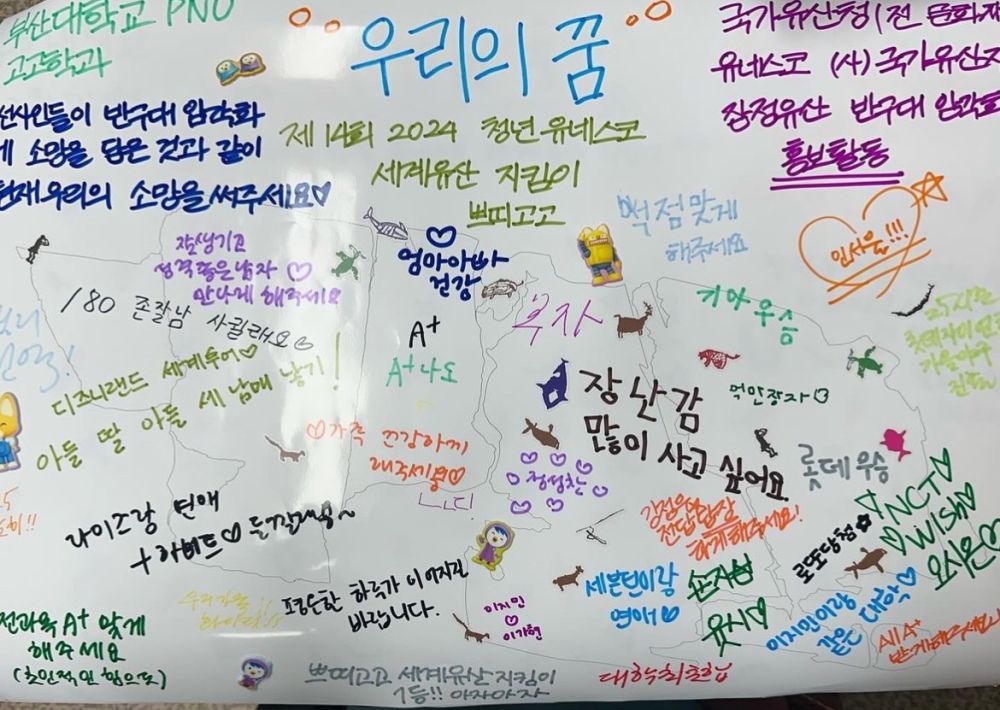 부산대학교 PNU
고고학과
우리의 꿈
국가유산청(전 문화재
유네스코 (사)국가유산지
잠정유산 반구대 암각화
홍보활동
선사인들이 반구대 암각화
에 소망을 담은 것과 같이
현재 우리의 소망을 써주세요♡
제 14회 2024 청년 유네스코
세계유산 지킴이
쁘띠고고
억 점맞게
해주세요
인서울!!!
잘생기고
성격좋은남자 ♡
만나게 해주세요
엄마아빠
건강
180 존잘남 사귈래요
A+
A+나도
부자
기아우승
디즈니랜드 세계투어♡
아들 딸 아들 세 남매 낳기!
장난감
많이 사고 싶어요
억만장자
롯데우승
♡가족 건강하게
해주세요♡
라이즈랑 연애
+하버드♡
평온한 하루가 이어지길
바랍니다.
세븐틴이랑
연애
이지민
♡
이가현
로또당첨
NCT♡
♡WISH♡
유시♡
이지민이랑
같은 대학♡
All A+
받게해주세요
전과목 A+ 맞게
해주세요
(초인적인 힘으로)
쁘띠고고 세계유산 지킴이
1등!! 아자아자
대학최초합